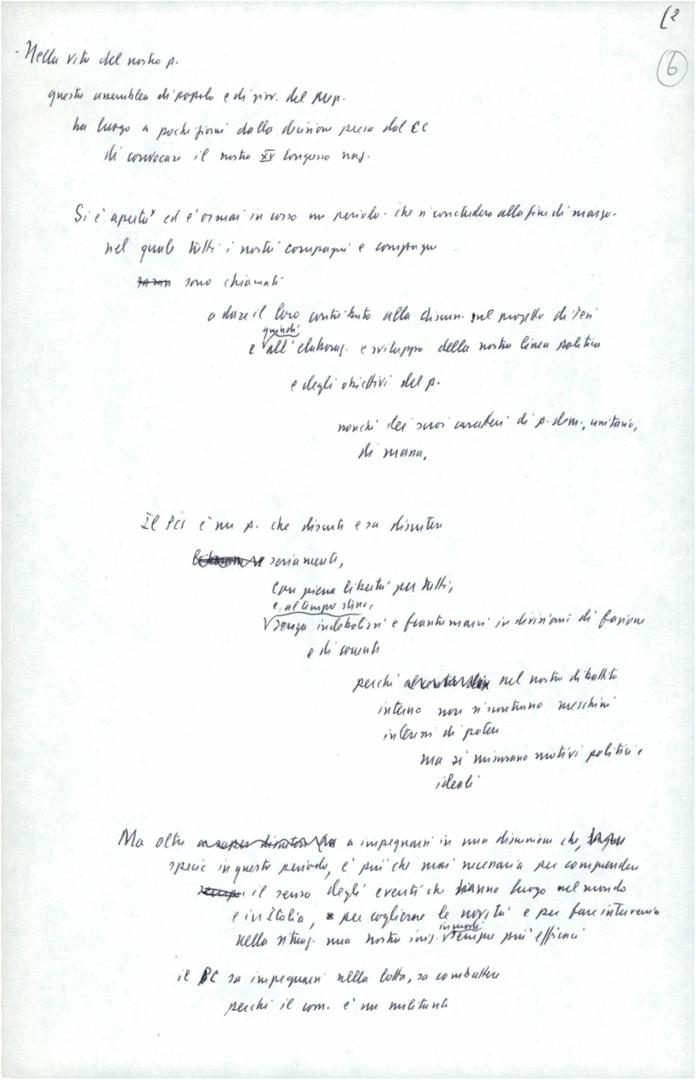 (2
6
- Nella vita del nostro p.
questa assemblea di popolo e di giov. del Mep.
ha luogo a pochi giorni dalla decisione presa dal CC
di convocare il nostro XV Congresso naz.
Si è aperto ed è ormai in corso un periodo - che si concluderà alla fine di marzo -
nel quale tutti i nostri compagni e compagne
sono chiamati
a dare il loro contributo alla discuss. sul progetto di Tesi
quindi
e all'elaboraz. e sviluppo della nostra linea politica
e degli obiettivi del p.
nonché dei suoi caratteri di p. dem., unitario,
di massa,
Il Pci è un p. che discute e sa discutere
seriamente,
con piena libertà per tutti,
e, al tempo stesso,
senza indebolirsi e frantumarsi in divisioni di frazione
e di correnti
perché nel nostro dibattito
interno non si scontrano meschini
interessi di potere
ma si misurano motivi politici e
ideali
Ma oltre a impegnarsi in una discussione che,
specie in questo periodo, è più che mai necessaria per comprendere
il senso degli eventi che hanno luogo nel mondo
e in Italia, per coglierne le novità e per fare intervenire
in modo
nella situaz. una nostra iniz. sempre più efficace
il PC sa impegnarsi nella lotta, sa combattere
perché il com. è un militante